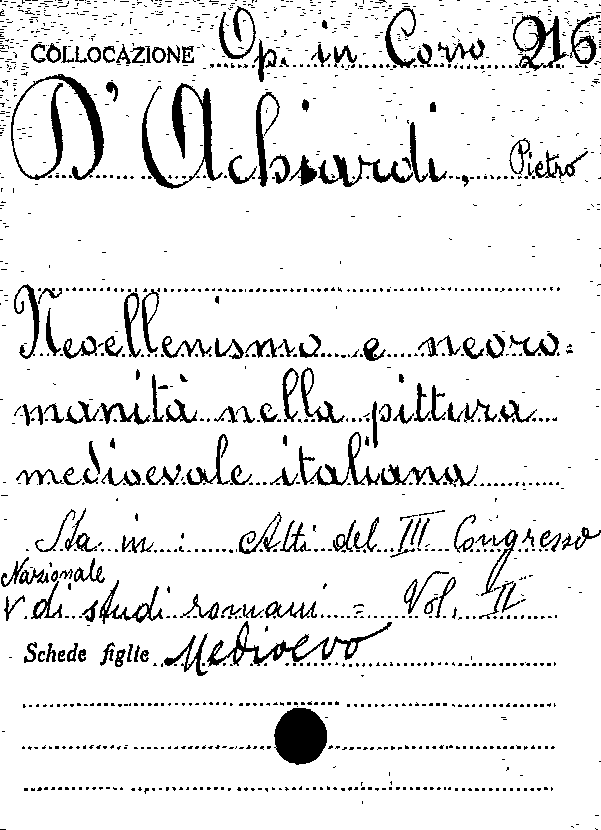 COLLOCAZIONE Op. in Corso 216
D'Achiardi, Pietro
Neoellenismo e neoro=
manità nella pittura
medioevale italiana
Sta in: Atti del III Congresso
Nazionale
V di studi romani = Vol. II
Schede figlie Medioevo